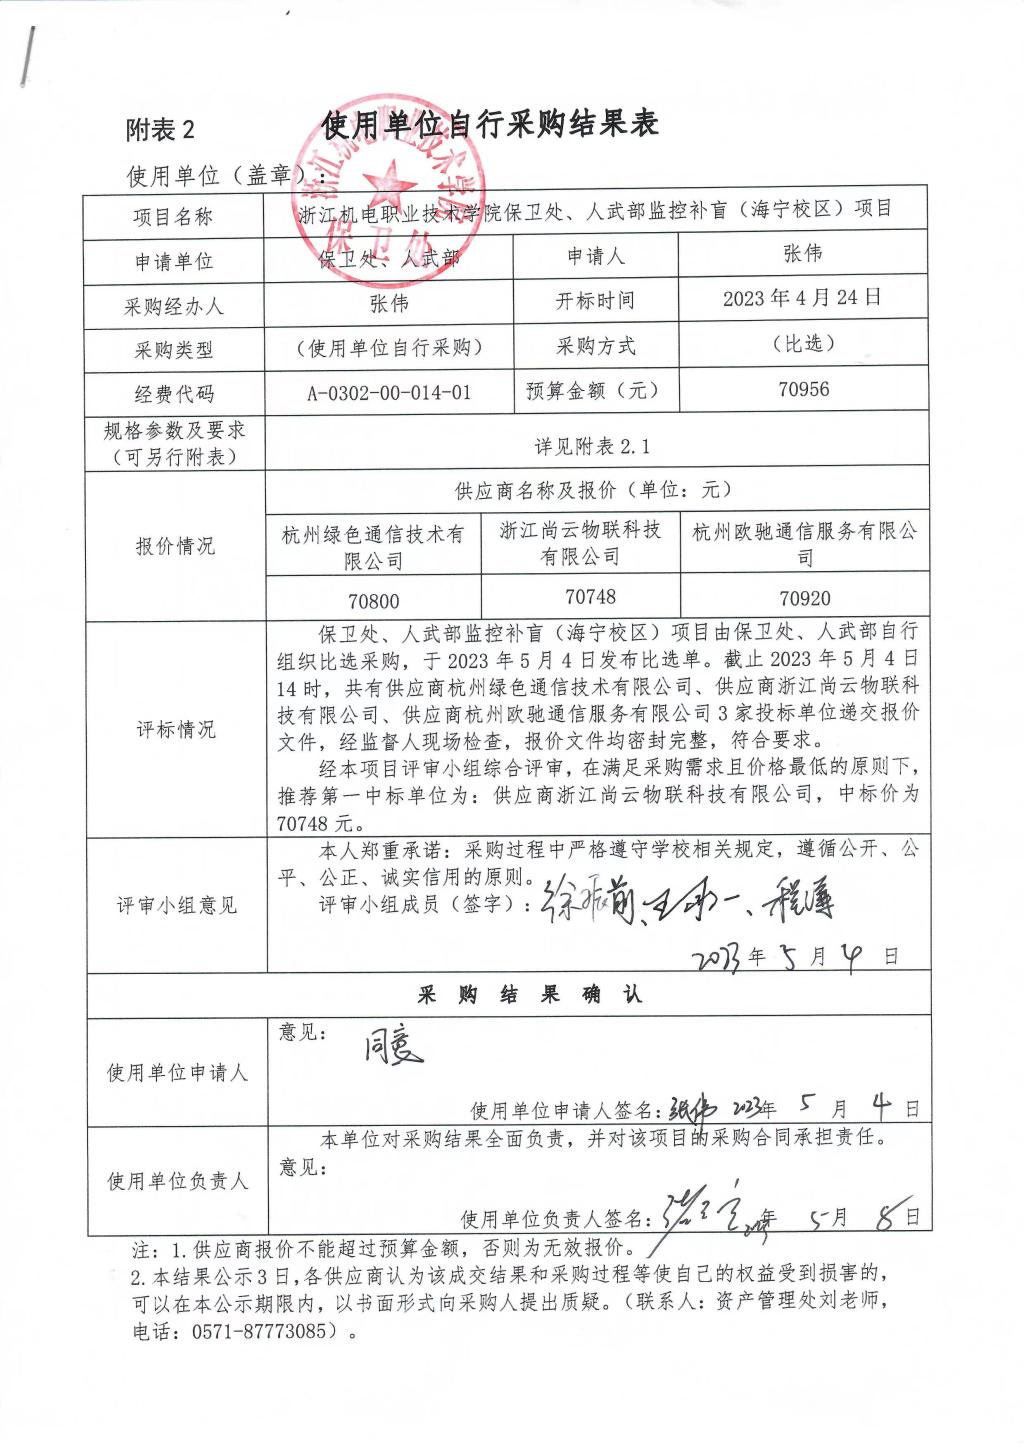 附表2
使用单位自行采购结果表
使用单位（盖章）：
浙江机电职业技术学院
保卫处
项目名称
浙江机电职业技术学院保卫处、人武部监控补盲（海宁校区）项目
申请单位
保卫处、人武部
申请人
张伟
采购经办人
张伟
开标时间
2023年4月24日
采购类型
（使用单位自行采购）
采购方式
（比选）
经费代码
A-0302-00-014-01
预算金额（元）
70956
规格参数及要求
（可另行附表）
详见附表2.1
报价情况
供应商名称及报价（单位：元）
杭州绿色通信技术有
限公司
浙江尚云物联科技
有限公司
杭州欧驰通信服务有限公
司
70800
70748
70920
评标情况
保卫处、人武部监控补盲（海宁校区）项目由保卫处、人武部自行
组织比选采购，于2023年5月4日发布比选单。截止2023年5月4日
14时，共有供应商杭州绿色通信技术有限公司、供应商浙江尚云物联科
技有限公司、供应商杭州欧驰通信服务有限公司3家投标单位递交报价
文件，经监督人现场检查，报价文件均密封完整，符合要求。
经本项目评审小组综合评审，在满足采购需求且价格最低的原则下，
推荐第一中标单位为：供应商浙江尚云物联科技有限公司，中标价为
70748元。
评审小组意见
本人郑重承诺：采购过程中严格遵守学校相关规定，遵循公开、公
平、公正、诚实信用的原则。
评审小组成员（签字）：
2023年5月4日
采购结果确认
使用单位申请人
意见：
同意
使用单位申请人签名：张伟 2023年5月4日
使用单位负责人
本单位对采购结果全面负责，并对该项目的采购合同承担责任。
意见：
使用单位负责人签名： 年5月8日
注：1.供应商报价不能超过预算金额，否则为无效报价。
2.本结果公示3日，各供应商认为该成交结果和采购过程等使自己的权益受到损害的，
可以在本公示期限内，以书面形式向采购人提出质疑。（联系人：资产管理处刘老师，
电话：0571-87773085）。